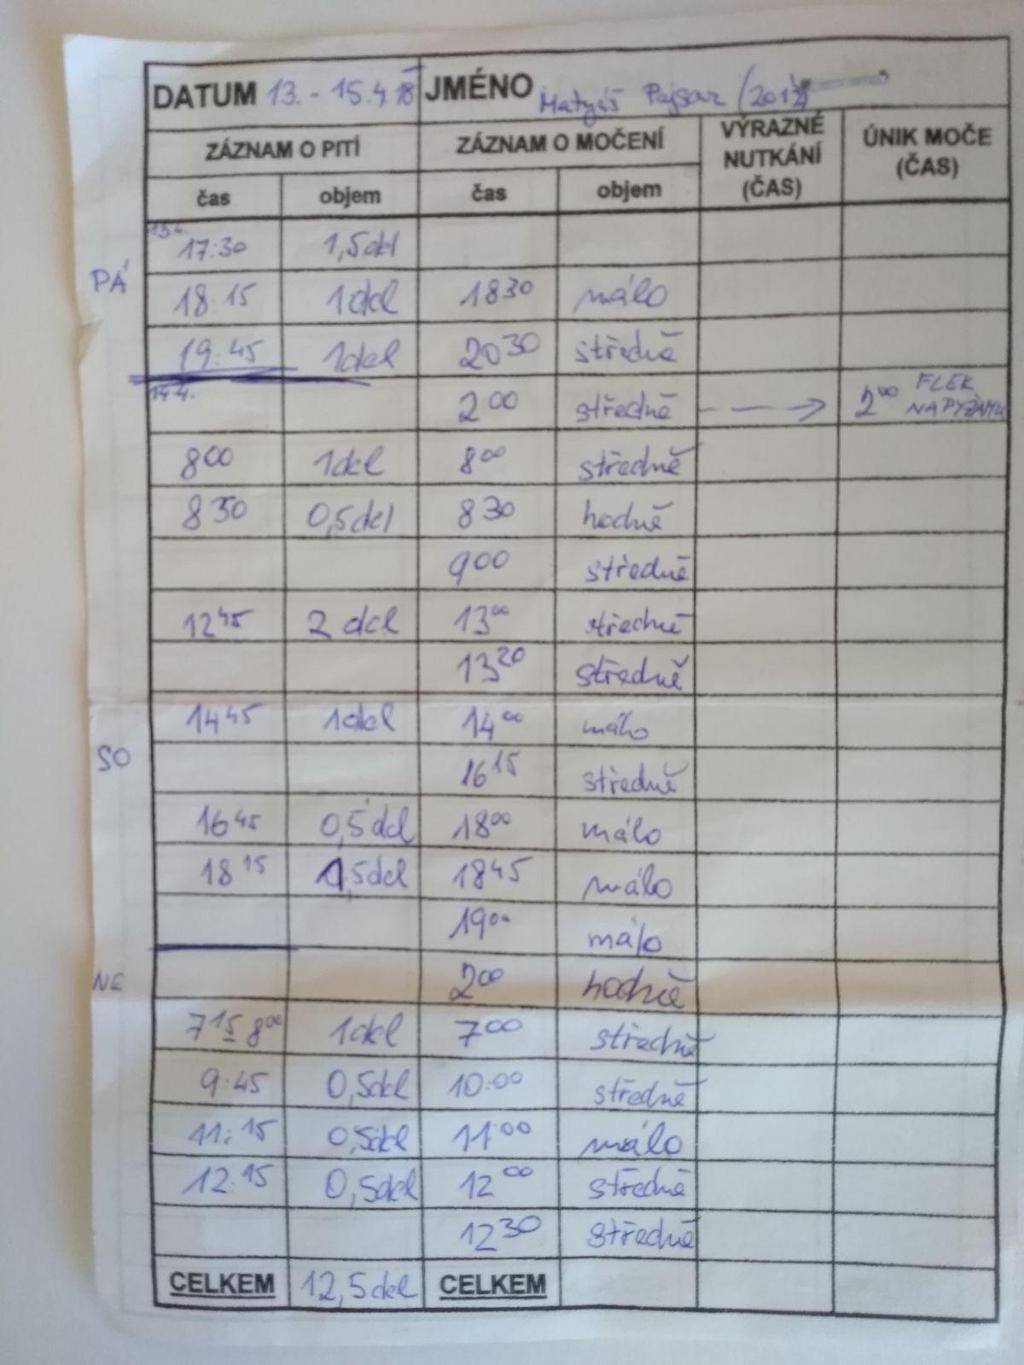 DATUM 13. - 15.4. 18 JMÉNO Matyáš
ZÁZNAM O PITÍ ZÁZNAM O MOČENÍ VÝRAZNÉ NUTKÁNÍ (ČAS) ÚNIK MOČE (ČAS)
čas objem čas objem
13.4.
17:30 1,5dcl
PÁ 18:15 1dcl 18 30 málo
19:45 1dcl 20 30 středně
14.4.
2 00 středně - - -> 2 00 FLEK NA PYŽAMU
8 00 1dcl 8 00 středně
8 30 0,5dcl 8 30 hodně
9 00 středně
12 45 2 dcl 13 00 středně
13 20 středně
14 45 1dcl 14 00 málo
SO 16 15 středně
16 45 0,5dcl 18 00 málo
18 15 1,5dcl 18 45 málo
19 00 málo
NE 2 00 hodně
7 15 8 00 1dcl 7 00 středně
9:45 0,5dcl 10:00 středně
11:15 0,5dcl 11 00 málo
12:15 0,5dcl 12 00 středně
12 30 středně
CELKEM 12,5dcl CELKEM